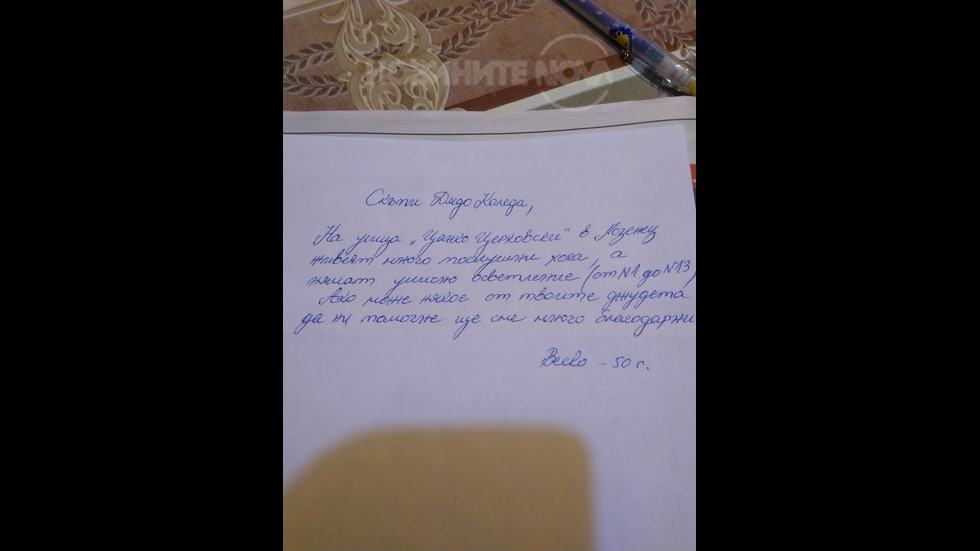 ПИШНИТЕ NOVA
Скъпи Дядо Коледа,
На улица "Цанко Церковски" в Лозенец
живеят много послушни хора, а
нямат улично осветление (от N1 до N13)
Ако може някое от твоите джуджета
да ни помогне ще сме много благодарни
Веско - 50 г.